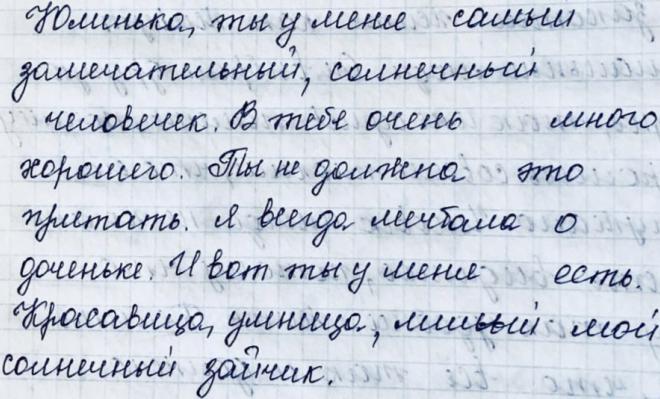 Юлинька, ты у меня самый
замечательный, солнечный
человечек. В тебе очень много
хорошего. Ты не должна это
прятать. Я всегда мечтала о
доченьке. И вот ты у меня есть.
Красавица, умница, милый мой
солнечный зайчик.